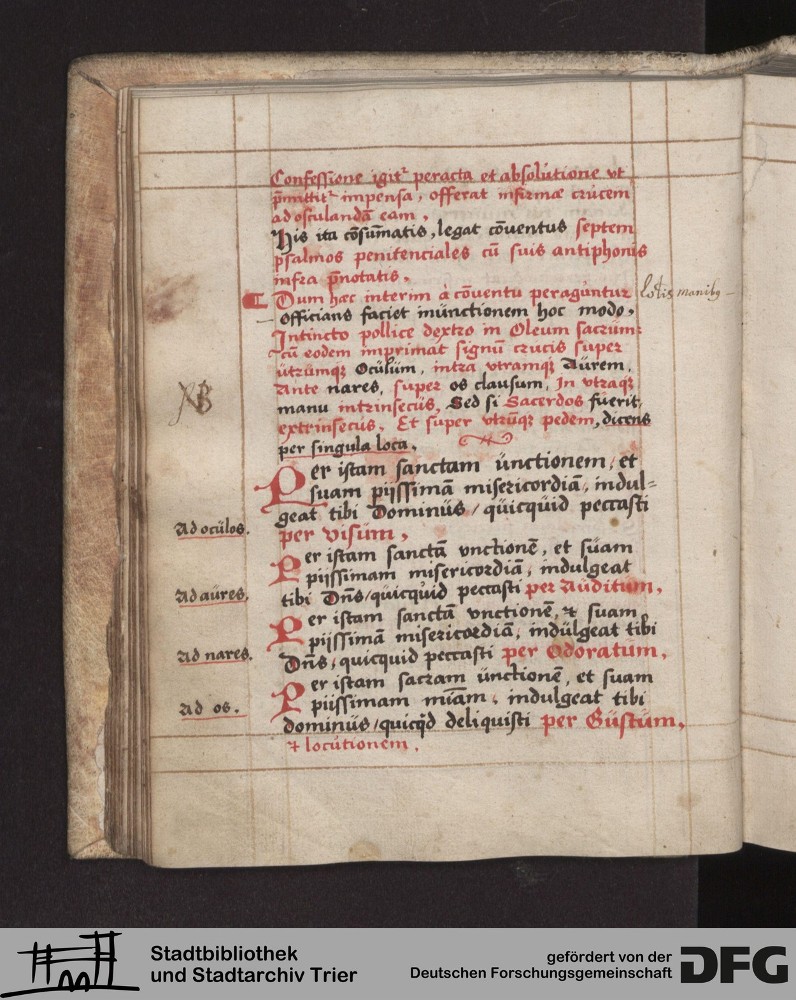 Confessione igit᷑ peracta et absolutione vt
p̄mittit᷑ impensa, offerat infirmæ crucem
ad osculandā eam.
His ita cōsūmatis, legat cōuentus septem
psalmos penitenciales cū suis antiphonis
infra p̄notatis.
Dum hæc interim à cōuentu peraguntur
lotis manibꝫ
Officians faciet inunctionem hoc modo.
Intincto pollice dextro in Oleum sacrum:
cū eodem imprimat signū crucis super
utrumqꝫ Oculum, intra vtramqꝫ Aurem,
Ante nares, super os clausum, In vtraqꝫ
NB
manu intrinsecus, Sed si Sacerdos fuerit,
extrinsecus, Et super vtrūqꝫ pedem, dicens
per singula loca.
Per istam sanctam unctionem, et
suam pijssimā misericordiā, indul=
geat tibi Dominus, quicquid peccasti
Ad oculos.
per visum,
Per istam sanctā vnctionē, et suam
pijssimam misericordiā, indulgeat
Ad aures.
tibi Dn̄s, quicquid peccasti per Auditum,
Per istam sanctā vnctionē, & suam
pijssimā misericordiā, indulgeat tibi
Ad nares.
Dn̄s, quicquid peccasti per Odoratum,
Per istam sacram unctionē, et suam
piissimam miā̄m, indulgeat tibi
Ad os.
dominus, quicqd deliquisti per Gustum,
& locutionem.
Stadtbibliothek
und Stadtarchiv Trier
gefördert von der
Deutschen Forschungsgemeinschaft
DFG